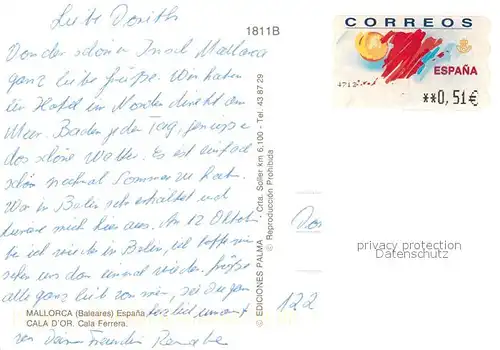 Liebe Dorith
Von der schönen Insel Mallorca
ganz liebe Grüße. Wir haben
ein Hotel im Norden direkt am
Meer. Baden jeden Tag, genieße
das schöne Wetter. Es ist einfach
schön nochmal Sommer zu haben.
War in Berlin sehr erkältet und
kuriere mich hier aus. Am 12 Oktob
bin ich wieder in Berlin, ich hoffe wir
sehen uns dann einmal wieder. Grüße
alle ganz lieb von mir, sei Du ganz
herzlich umarmt
von Deiner Freundin Renate
MALLORCA (Baleares) España
CALA D'OR. Cala Ferrera.
1811B
© EDICIONES PALMA - Crta. Soller km 6,100 - Tel. 43 87 29
© Reproducción Prohibida
CORREOS
ESPAÑA
**0,51€
122
privacy protection
Datenschutz